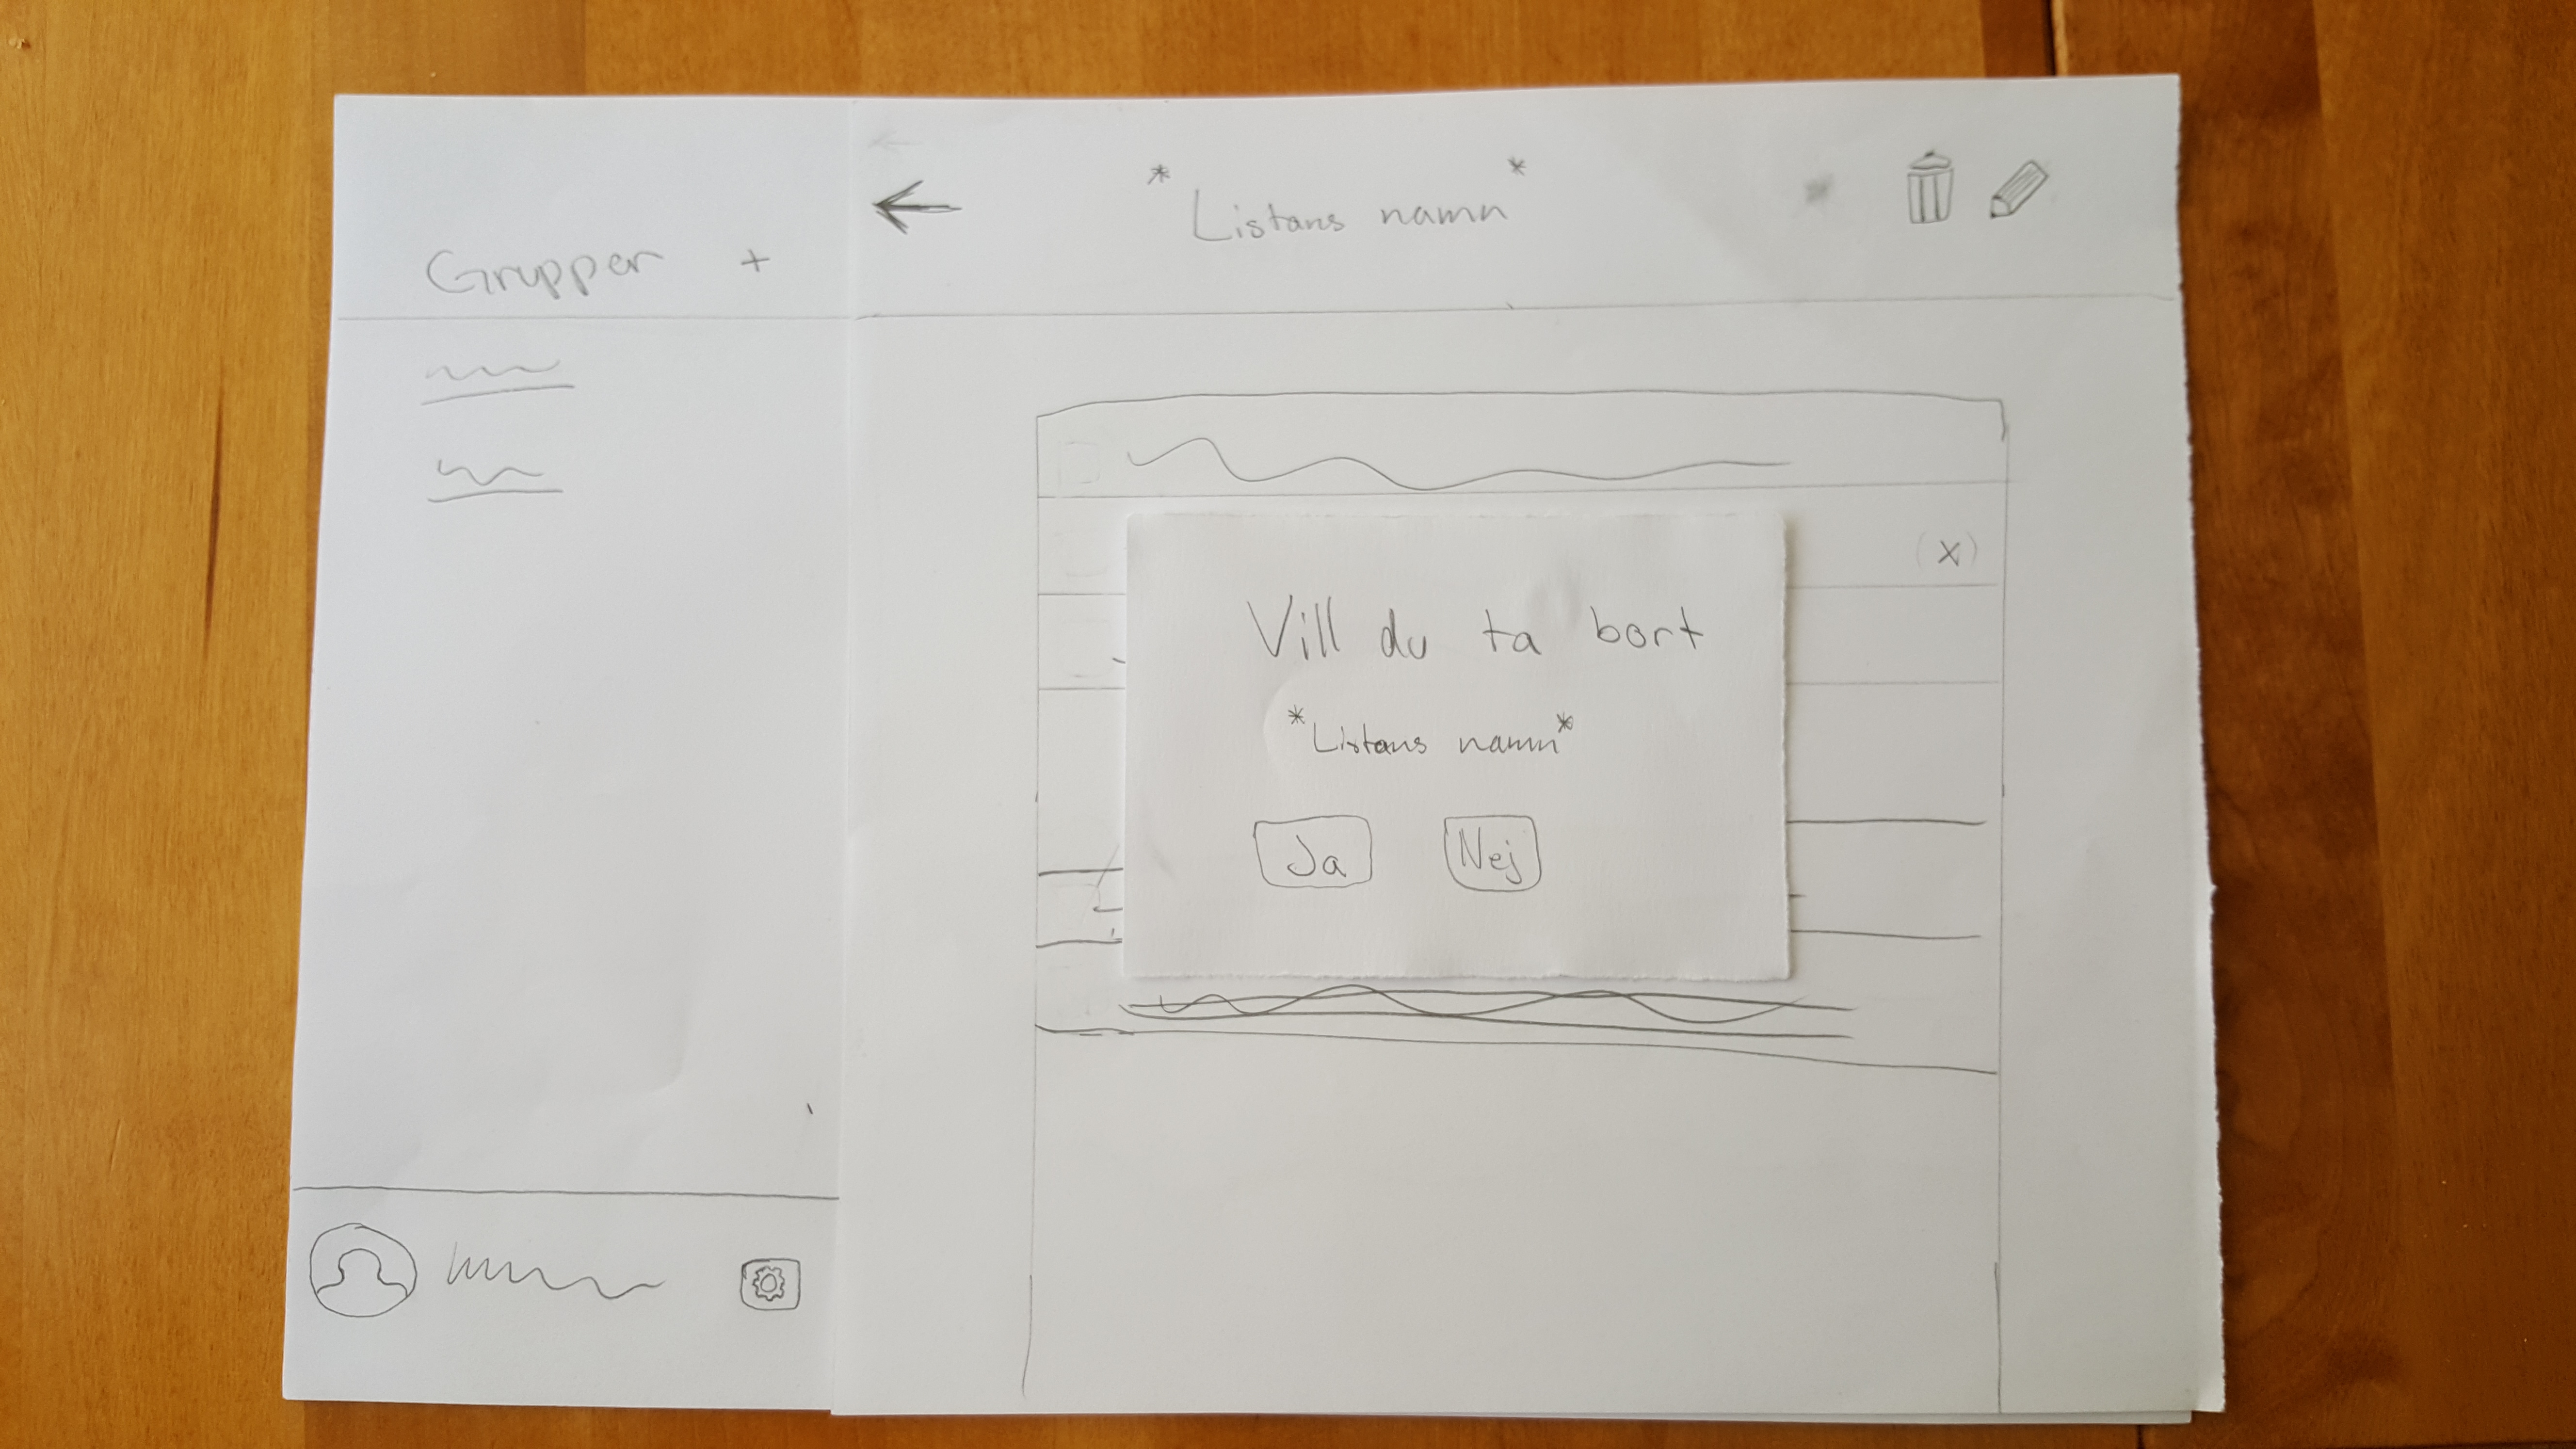 Grupper +
*Listans namn*
(x)
Vill du ta bort
*Listans namn*
Ja Nej